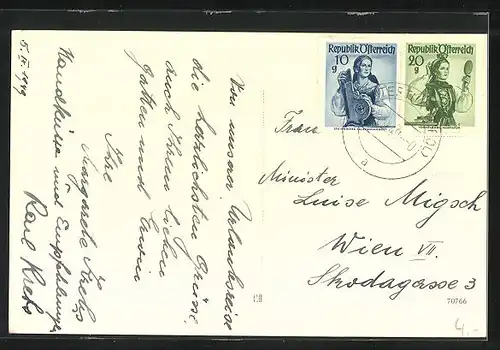 5. IX. 1949
Von unserer Urlaubsreise
die herzlichsten Grüsse
auch Ihrem lieben
Gatten und
Ihre
Margarete Krebs
Handküsse und Empfehlungen
Karl Krebs
Republik Österreich
10
g
Republik Österreich
20
g
a
Frau
Minister
Luise Migsch
Wien VII.
Skodagasse 3
70766
4.-